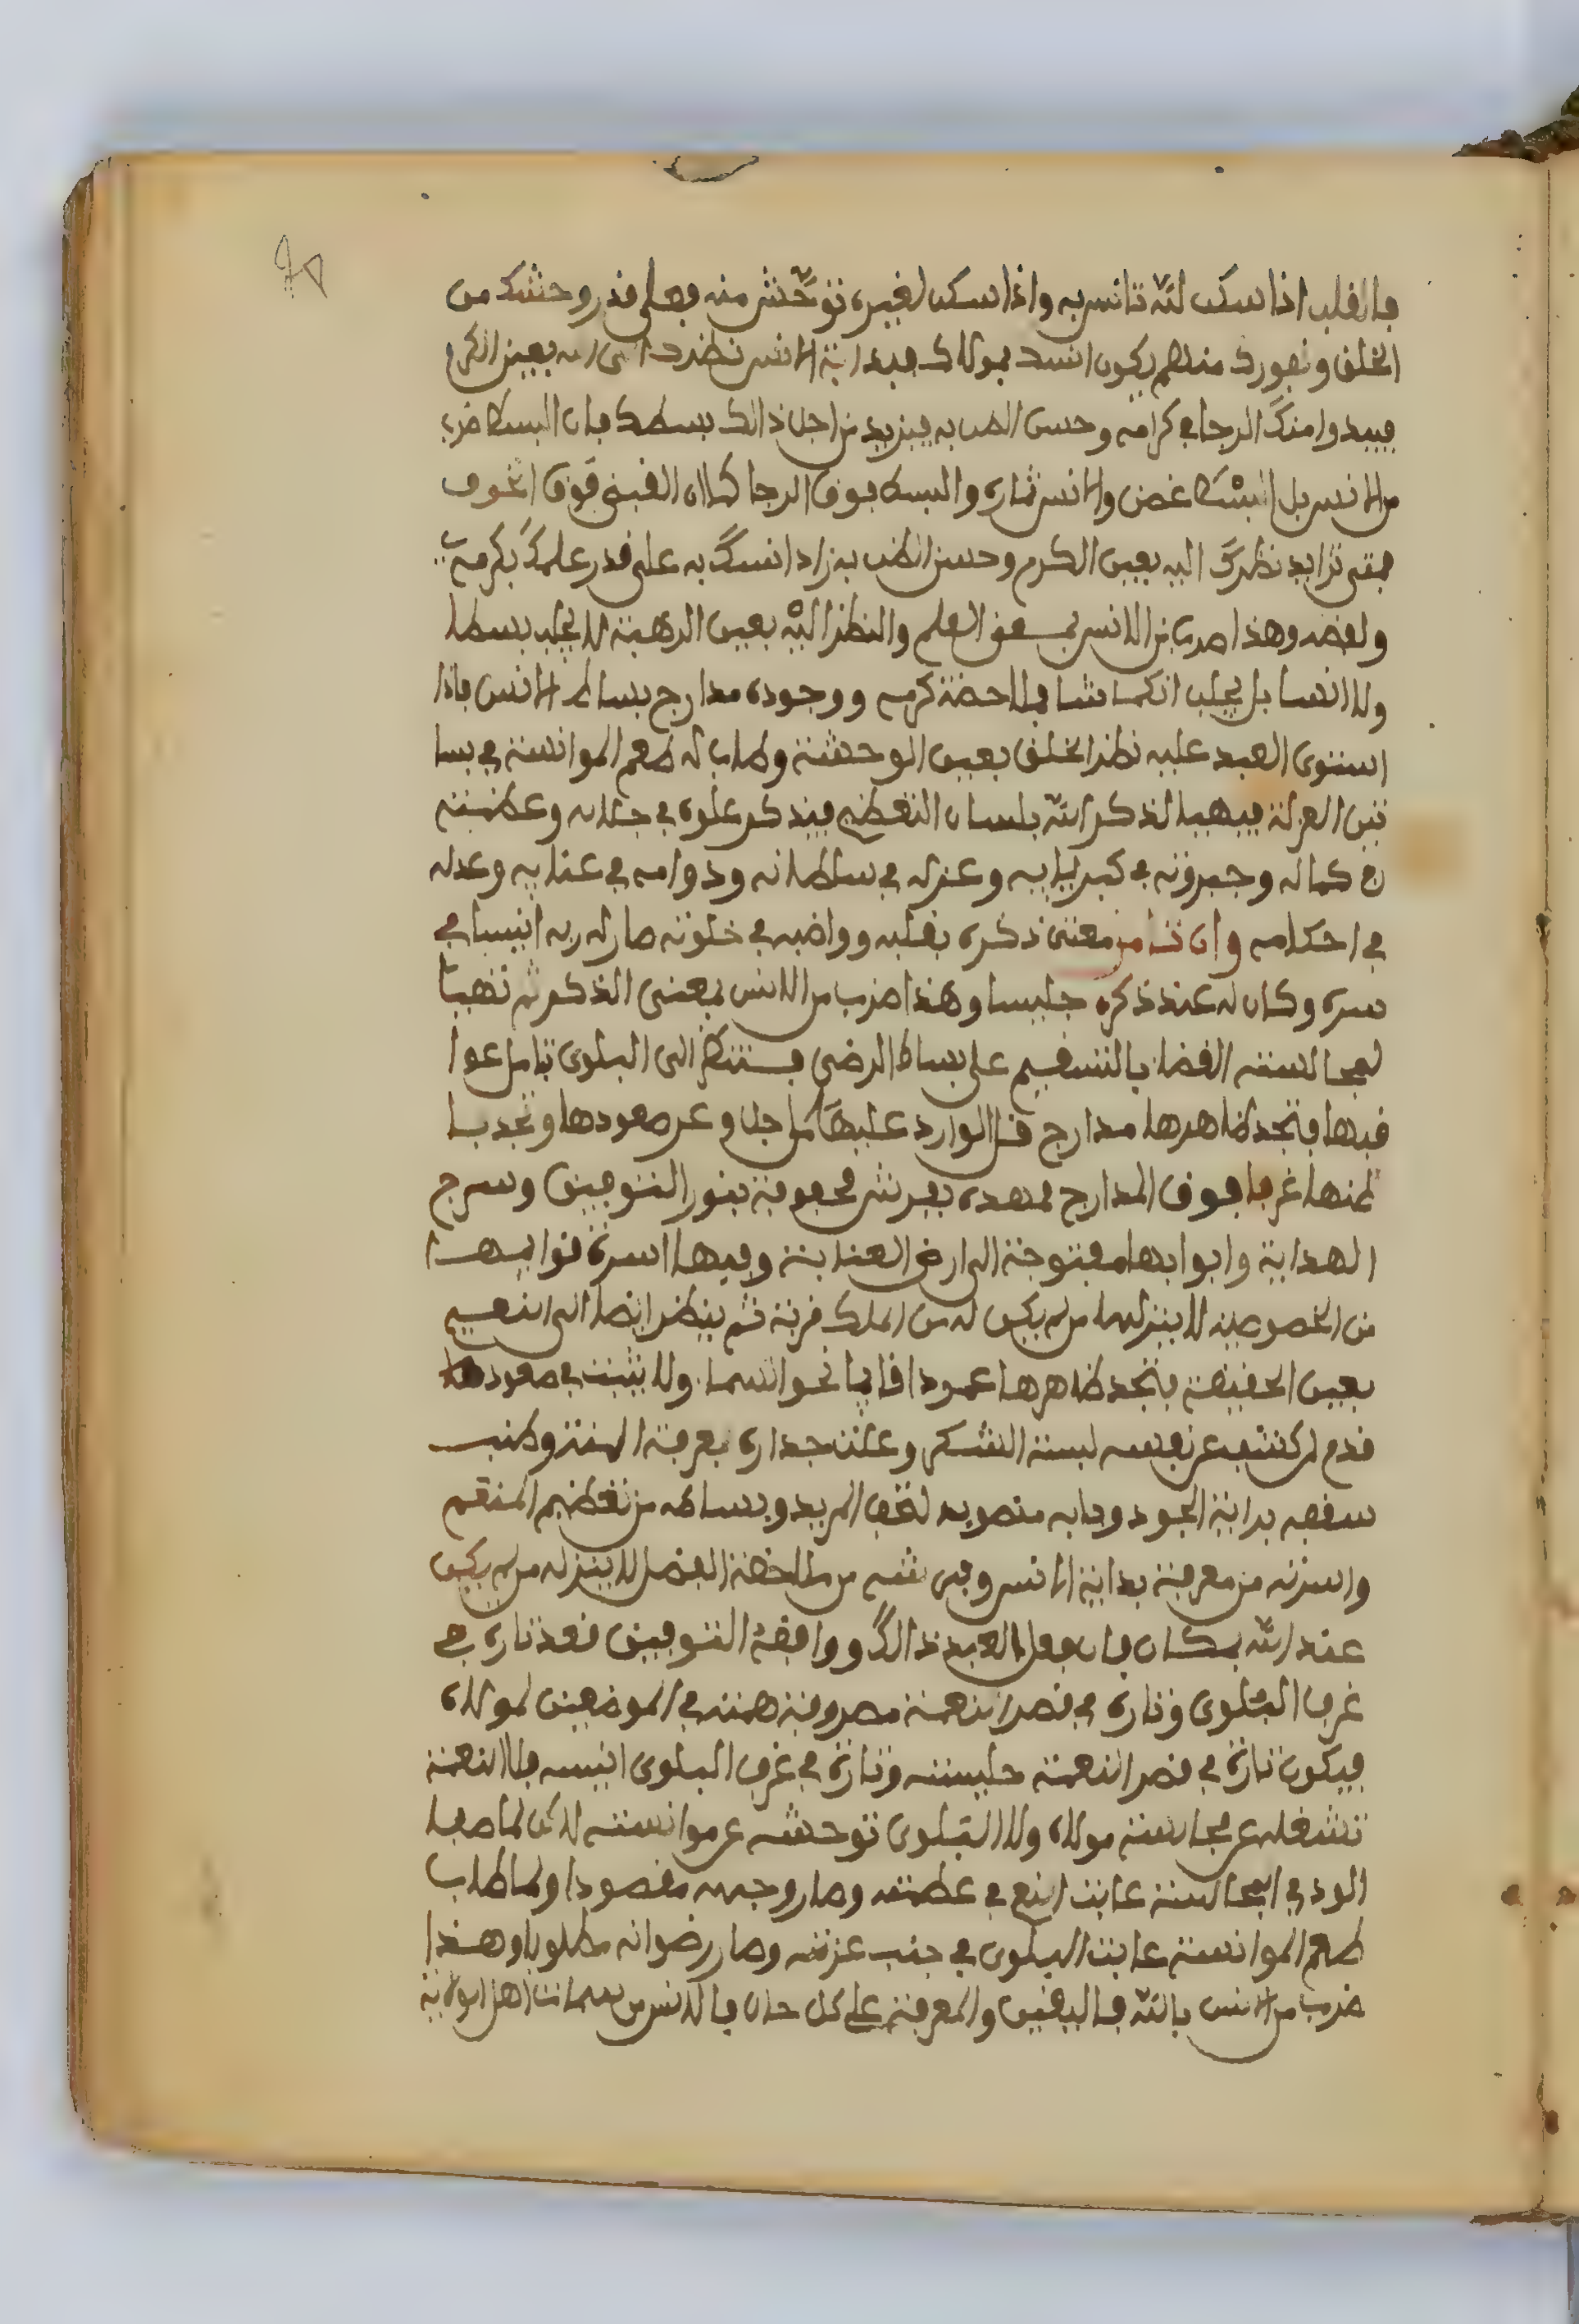 فالقلب اذا سكن لله تانس به واذا سكن لغيره توحش منه فعلى قدر وحشتك من
الخلق ونفورك منهم يكون انسك بمولاك فبداية الانس نظرك الى الله بعين الكرم
فيبدوا منك الرجا في كرامه وحسن الظن به فيزيد من اجل ذالك بسطك فان البسط ضرب
من الانس بل البسط غصن والانس ثماره والبسط فوق الرجا كما ان القبض فوق الخوف
فمتى تزايد نظرك اليه بعين الكرم وحسن الظن به زاد انسك به على قدر علمك بكرمه
ولفضه وهذا ضرب من الانس بمعنى العلم والنظر اليه بعين الرهبة لا يجلب بسطا
ولا انسا بل يجلب انكماشا فملاحضة كرمه ووجوده مدارج بساط الانس فاذا
استوى العبد عليه نظر الخلق بعين الوحشة وطاب له طعم الموانسة في بسا
تين العزلة فيهيا لذكر الله بلسان التعظيم فيذكر علوه في جلاله وعظمته
في كماله وجبروته في كبريايه وعزله في سلطانه ودوامه في عنايه وعدله
في احكامه وان تنا من معنى ذكره بقلبه وواضبه في خلوته صار له ربه انيسا في
سره وكان له عند ذكره جليسا وهذا ضرب من الانس بمعنى الذكر ثم تهيا
لمجالسته القضا بالتسليم على بساط الرضى فتنظر الى البلوى تامل عوا
قبها فتجد ظاهرها مدارج قل الوارد عليها من اجل وعر صعودها وتجد با
طنها غرفا فوق المدارج ممهدة بفرش محفوفة بنور التوفيق وسرج
الهداية وابوابها مفتوحة الى ارض العناية وفيها اسرة توابها
من الخصوصية لا ينزلها من لم يكن له من الملك قربة ثم ينظر ايضا الى النعيم
بعين الحقيقة فتجد ظاهرها عمودا قايما نحو السما ولا يثبت في صعودها
قدم لم كشف عن نفسه لبسة الشكر وعلت جداره بعرفة المنة وطنب
سقفه براية الجود وبابه منصوب لتحف المريد وبساطه من تعظيم المنعم
واسرته من معرفة بداية الانس وفي ثم من ملاحضة الفضل لا ينزله من لم يكن
عند الله بمكان فان فعل العبد ذالك ووافقه التوفيق فعد تارة في
غرف البلوى وتارة في قصر النعمة مصروفة همته في الموضعين لمولاه
فيكون تارة في قصر النعمة جليسه وتارة في غرف البلوى انيسه فلا النعمة
تشغله عن مجالسة مولاه ولا البلوى توحشه عن موانسته لاكن لما صفا
الود في المجالسة غابت النعم في عظمته وصار وجهه مقصودا ولما طاب
طعم الموانسة غابت البلوى في جنب عزته وصار رضوانه مطلوبا وهذا
ضرب من الانس بالله فاليقين والمعرفة على كل حال فالانس من سمات اهل الولاية